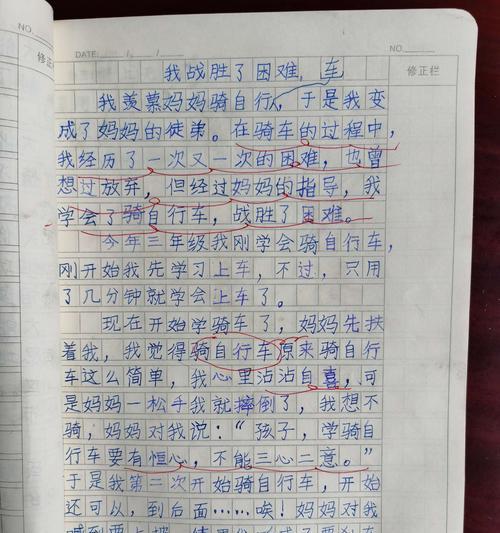 NO.
DATE: / /
NO.
修正栏
我战胜了困难,
车
我羡慕妈妈骑自行,于是我变
成了妈妈的徒弟。在骑车的过程中,
我经历了一次又一次的困难,也曾
想过放弃,但经过妈妈的指导,我
学会了骑自行车,战胜了困难。
今年三年级我刚学会骑自行车,
刚开始我先学习上车,不过,只用
了几分钟就学会上车了。
现在开始学骑车了,妈妈先扶
着我,我觉得骑自行车原来骑自行
车这么简单,我心里沾沾自喜,可
是妈妈一松手我就摔倒了,我想不
骑,妈妈对我说:“孩子,学骑自
行车要有恒心,不能三心二意。”
于是我第二次开始骑自行车,开始
还可以,到后面……唉!妈妈对我